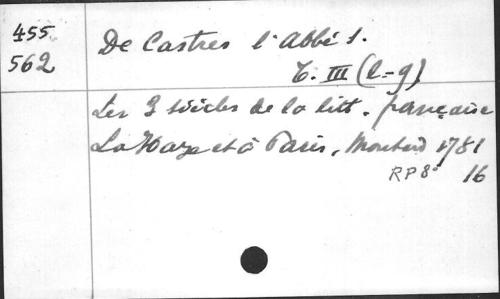 455
562
De Castres l'Abbé S.
T. III (l-g)
Les 3 siècles de la litt. française
La Haye et à Paris, Moutard 1781
RP 8° 16